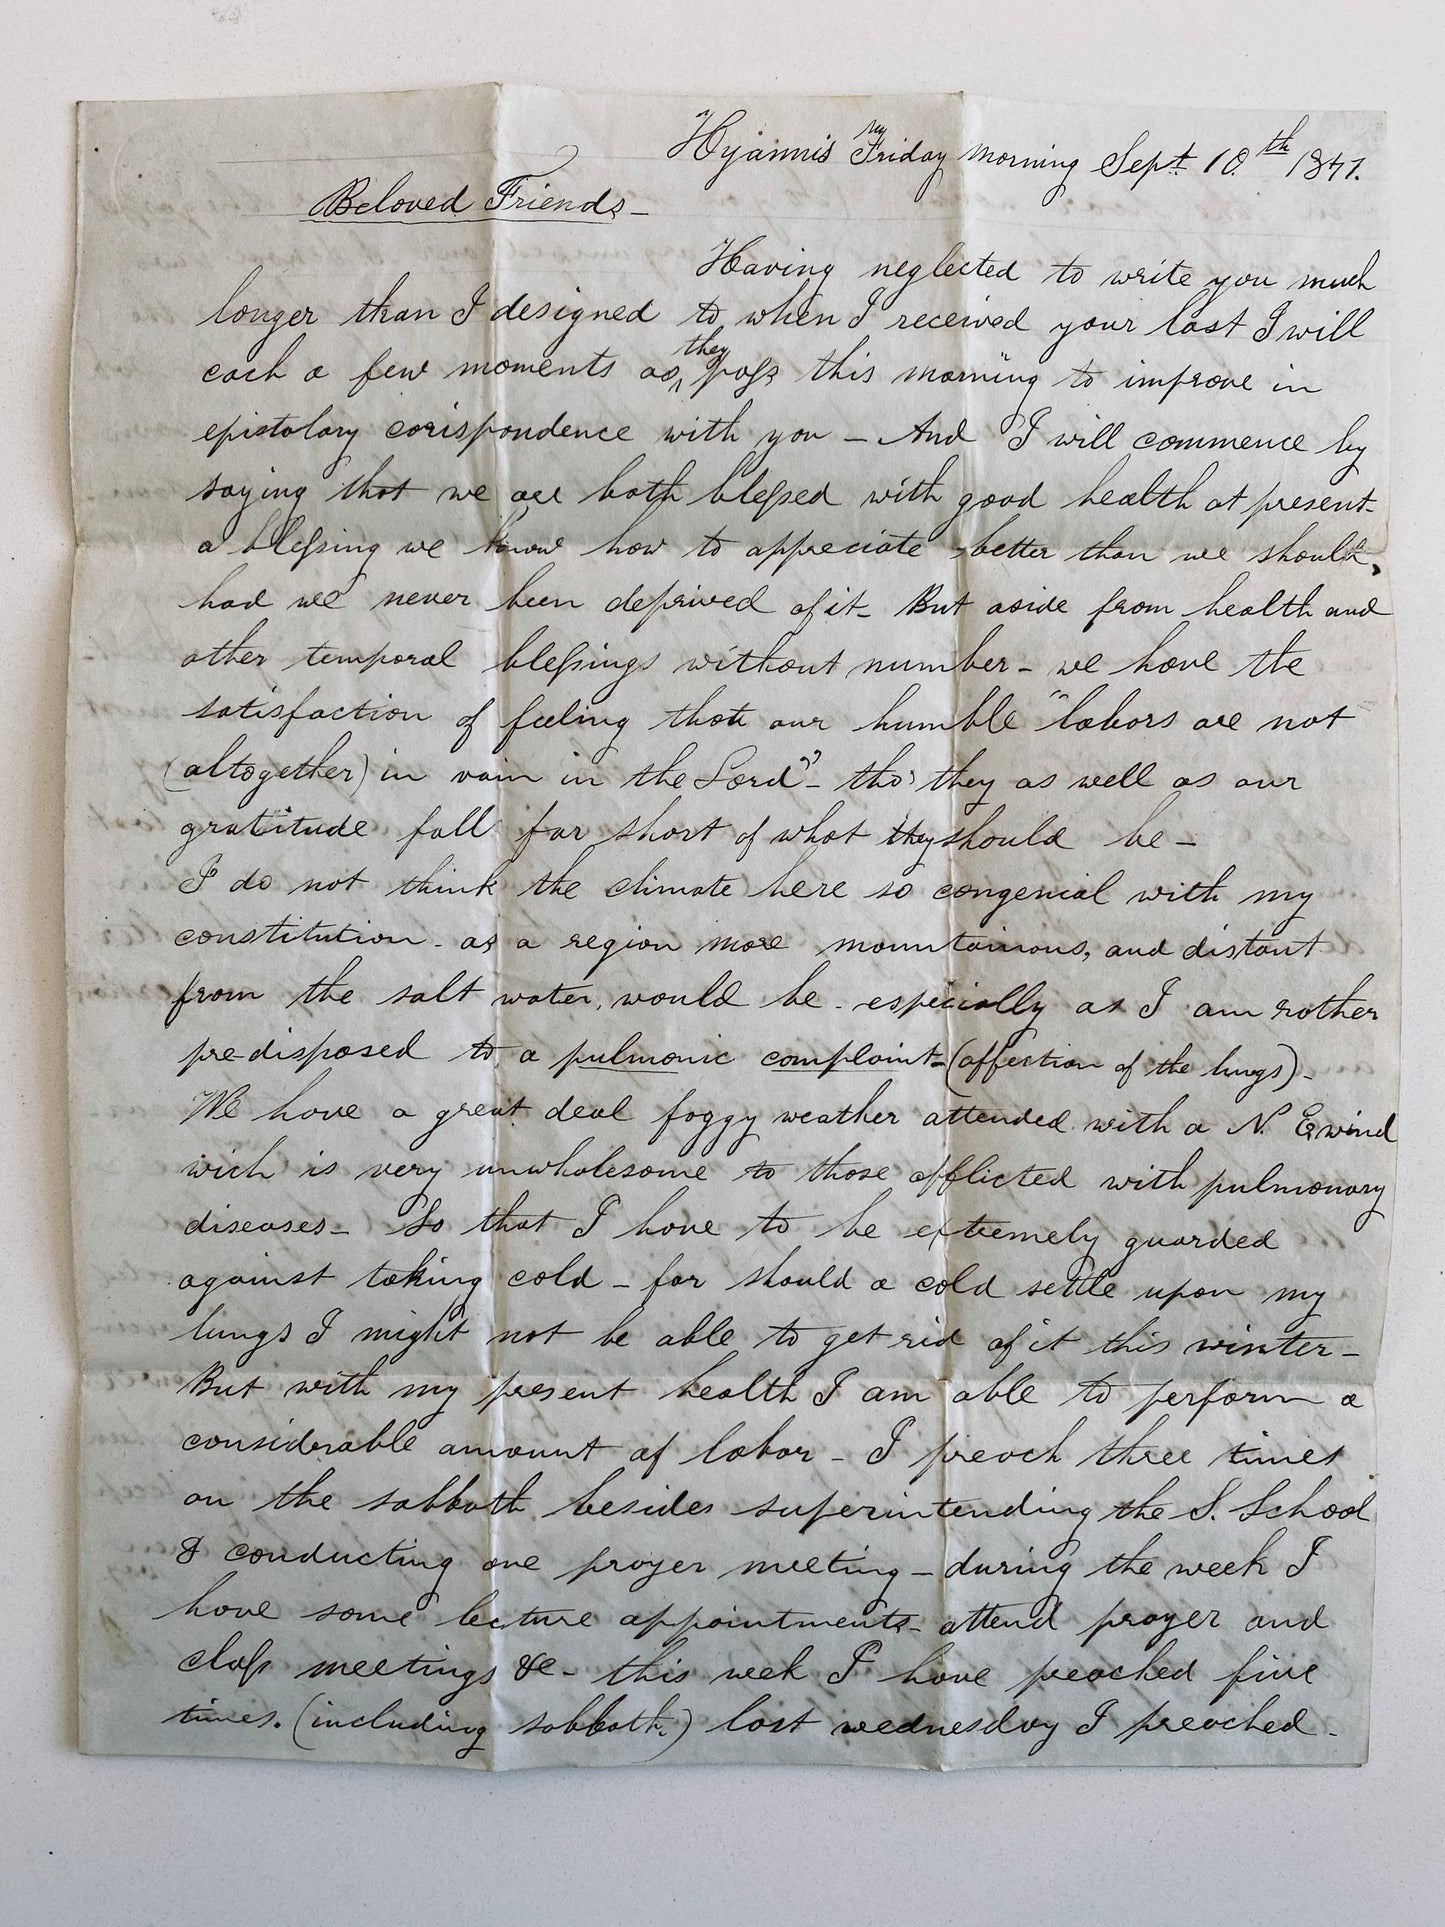 Hyannis Friday morning Sept. 10th 1847.
Beloved Friends—
Having neglected to write you much
longer than I designed to when I received your last I will
cach a few moments as they pass this morning to improve in
epistolary corispondence with you — And I will commence by
saying that we are both blessed with good health at present—
a blessing we know how to appreciate better than we should,
had we never been deprived of it — But aside from health and
other temporal blessings without number — we have the
satisfaction of feeling that our humble "labors are not
(altogether) in vain in the Lord" — tho' they as well as our
gratitude fall far short of what they should be —
I do not think the climate here so congenial with my
constitution — as a region more mountainous, and distant
from the salt water, would be — especially as I am rather
pre-disposed to a pulmonic complaint — (affection of the lungs) —
We have a great deal foggy weather attended with a N. E wind
wich is very unwholesome to those afflicted with pulmonary
diseases — So that I have to be extremely guarded
against taking cold — for should a cold settle upon my
lungs I might not be able to get rid of it this winter —
But with my present health I am able to perform a
considerable amount of labor — I preach three times
on the sabbath besides superintending the S. School
& conducting one prayer meeting — during the week I
have some lecture appointments — attend prayer and
class meetings &c — this week I have preached five
times. (including sabbath.) last wednesday I preached —